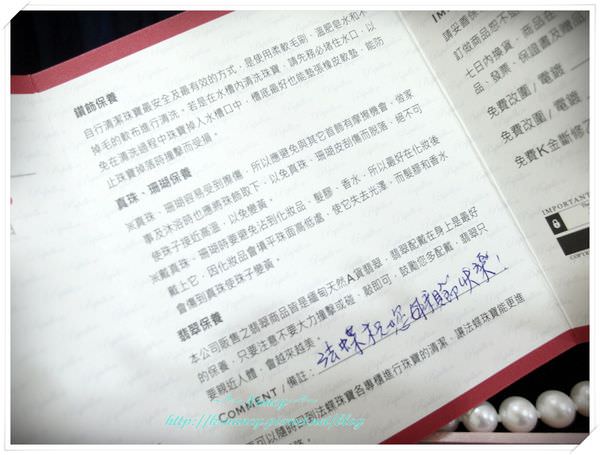 鑽飾保養
自行清潔珠寶最安全及最有效的方式，是使用柔軟毛刷、溫肥皂水和不
掉毛的軟布進行清洗。若是在水槽內清洗珠寶，請先務必堵住水口，以
免在清洗過程中珠寶掉入水槽口中，槽底最好也能墊張橡皮軟墊，能防
止珠寶掉落時撞擊而受損。
真珠、珊瑚保養
※真珠、珊瑚容易受到擦傷，所以應避免與其它首飾有摩擦機會，做家
事及沐浴時也應將珠飾取下，以免真珠、珊瑚皮刮傷而脫落，絕不可
使珠子接近高溫，以免變黃。
※戴真珠、珊瑚時要避免沾到化妝品、髮膠、香水，所以最好在化妝後
戴上它，因化妝品會填平珠面高低處，使它失去光澤，而髮膠和香水
會傷到真珠使珠子變黃。
翡翠保養
本公司販售之翡翠商品皆是緬甸天然A貨翡翠，翡翠配戴在身上是最好
的保養，只要注意不要大力撞擊或碰、敲即可，鼓勵您多配戴，翡翠只
要親近人體，會越來越美。
COMMENT / 備註：法蝶祝您母親節快樂！
可以隨時回到法蝶珠寶各專櫃進行珠寶的清潔，讓法蝶珠寶能更進
IM
請妥善保
訂做商品恕不
七日內換貨，商品在
品、發票、保證書及贈品
免費改圍 / 電鍍
免費改圍 / 電鍍
免費K金斷修
IMPORTANT